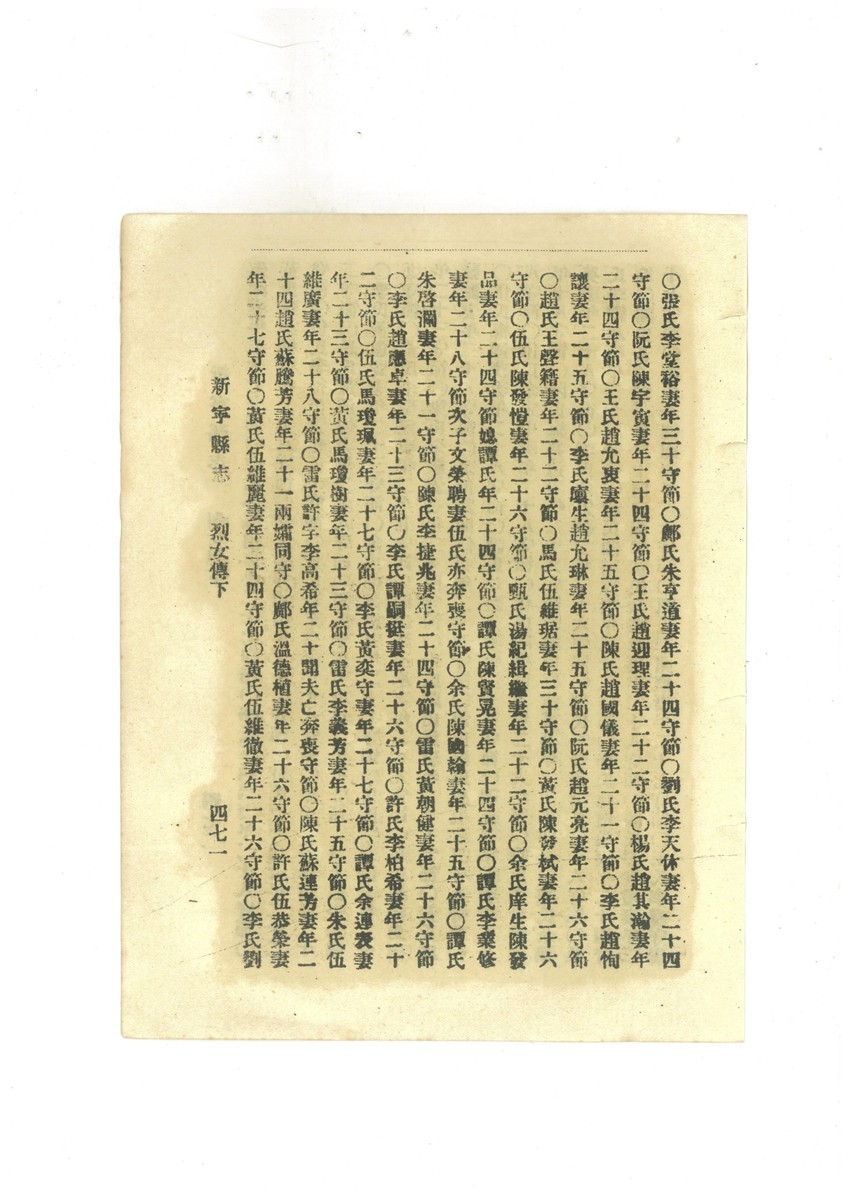 〇張氏李堂裕妻年三十守節〇鄺氏朱亨道妻年二十四守節〇劉氏李天休妻年二十四
守節〇阮氏陳宇寅妻年二十四守節〇王氏趙迎理妻年二十二守節〇楊氏趙其瀚妻年
二十四守節〇王氏趙允衷妻年二十五守節〇陳氏趙國儀妻年二十一守節〇李氏趙恂
讓妻年二十五守節〇李氏廩生趙允琳妻年二十五守節〇阮氏趙元亮妻年二十六守節
〇趙氏王聲籍妻年二十二守節〇馬氏伍維琚妻年三十守節〇黃氏陳發栻妻年二十六
守節〇伍氏陳發愷妻年二十六守節〇甄氏湯紀緝繼妻年二十二守節〇余氏庠生陳發
品妻年二十四守節媳譚氏年二十四守節〇譚氏陳賢晃妻年二十四守節〇譚氏李業修
妻年二十八守節次子文榮聘妻伍氏亦奔喪守節〇余氏陳國翰妻年二十五守節〇譚氏
朱啓瀾妻年二十一守節〇陳氏李捷兆妻年二十四守節〇雷氏黃朝健妻年二十六守節
〇李氏趙卓妻年二十三守節〇李氏譚嗣挺妻年二十六守節〇許氏李柏希妻年二十
二守節〇伍氏馬瓊珮妻年二十七守節〇李氏黃奕守妻年二十七守節〇譚氏余連表妻
年二十三守節〇黃氏馬瓊樹妻年二十三守節〇雷氏李義芳妻年二十五守節〇朱氏伍
維廣妻年二十八守節〇雷氏許字李高希年二十聞夫亡奔喪守節〇陳氏蘇連芳妻年二
十四趙氏蘇騰芳妻年二十一兩孀同守〇鄺氏溫德植妻年二十六守節〇許氏伍恭榮妻
年二十七守節〇黃氏伍維麗妻年二十四守節〇黃氏伍維徹妻年二十六守節〇李氏劉
新寧縣志 烈女傳下 四七一